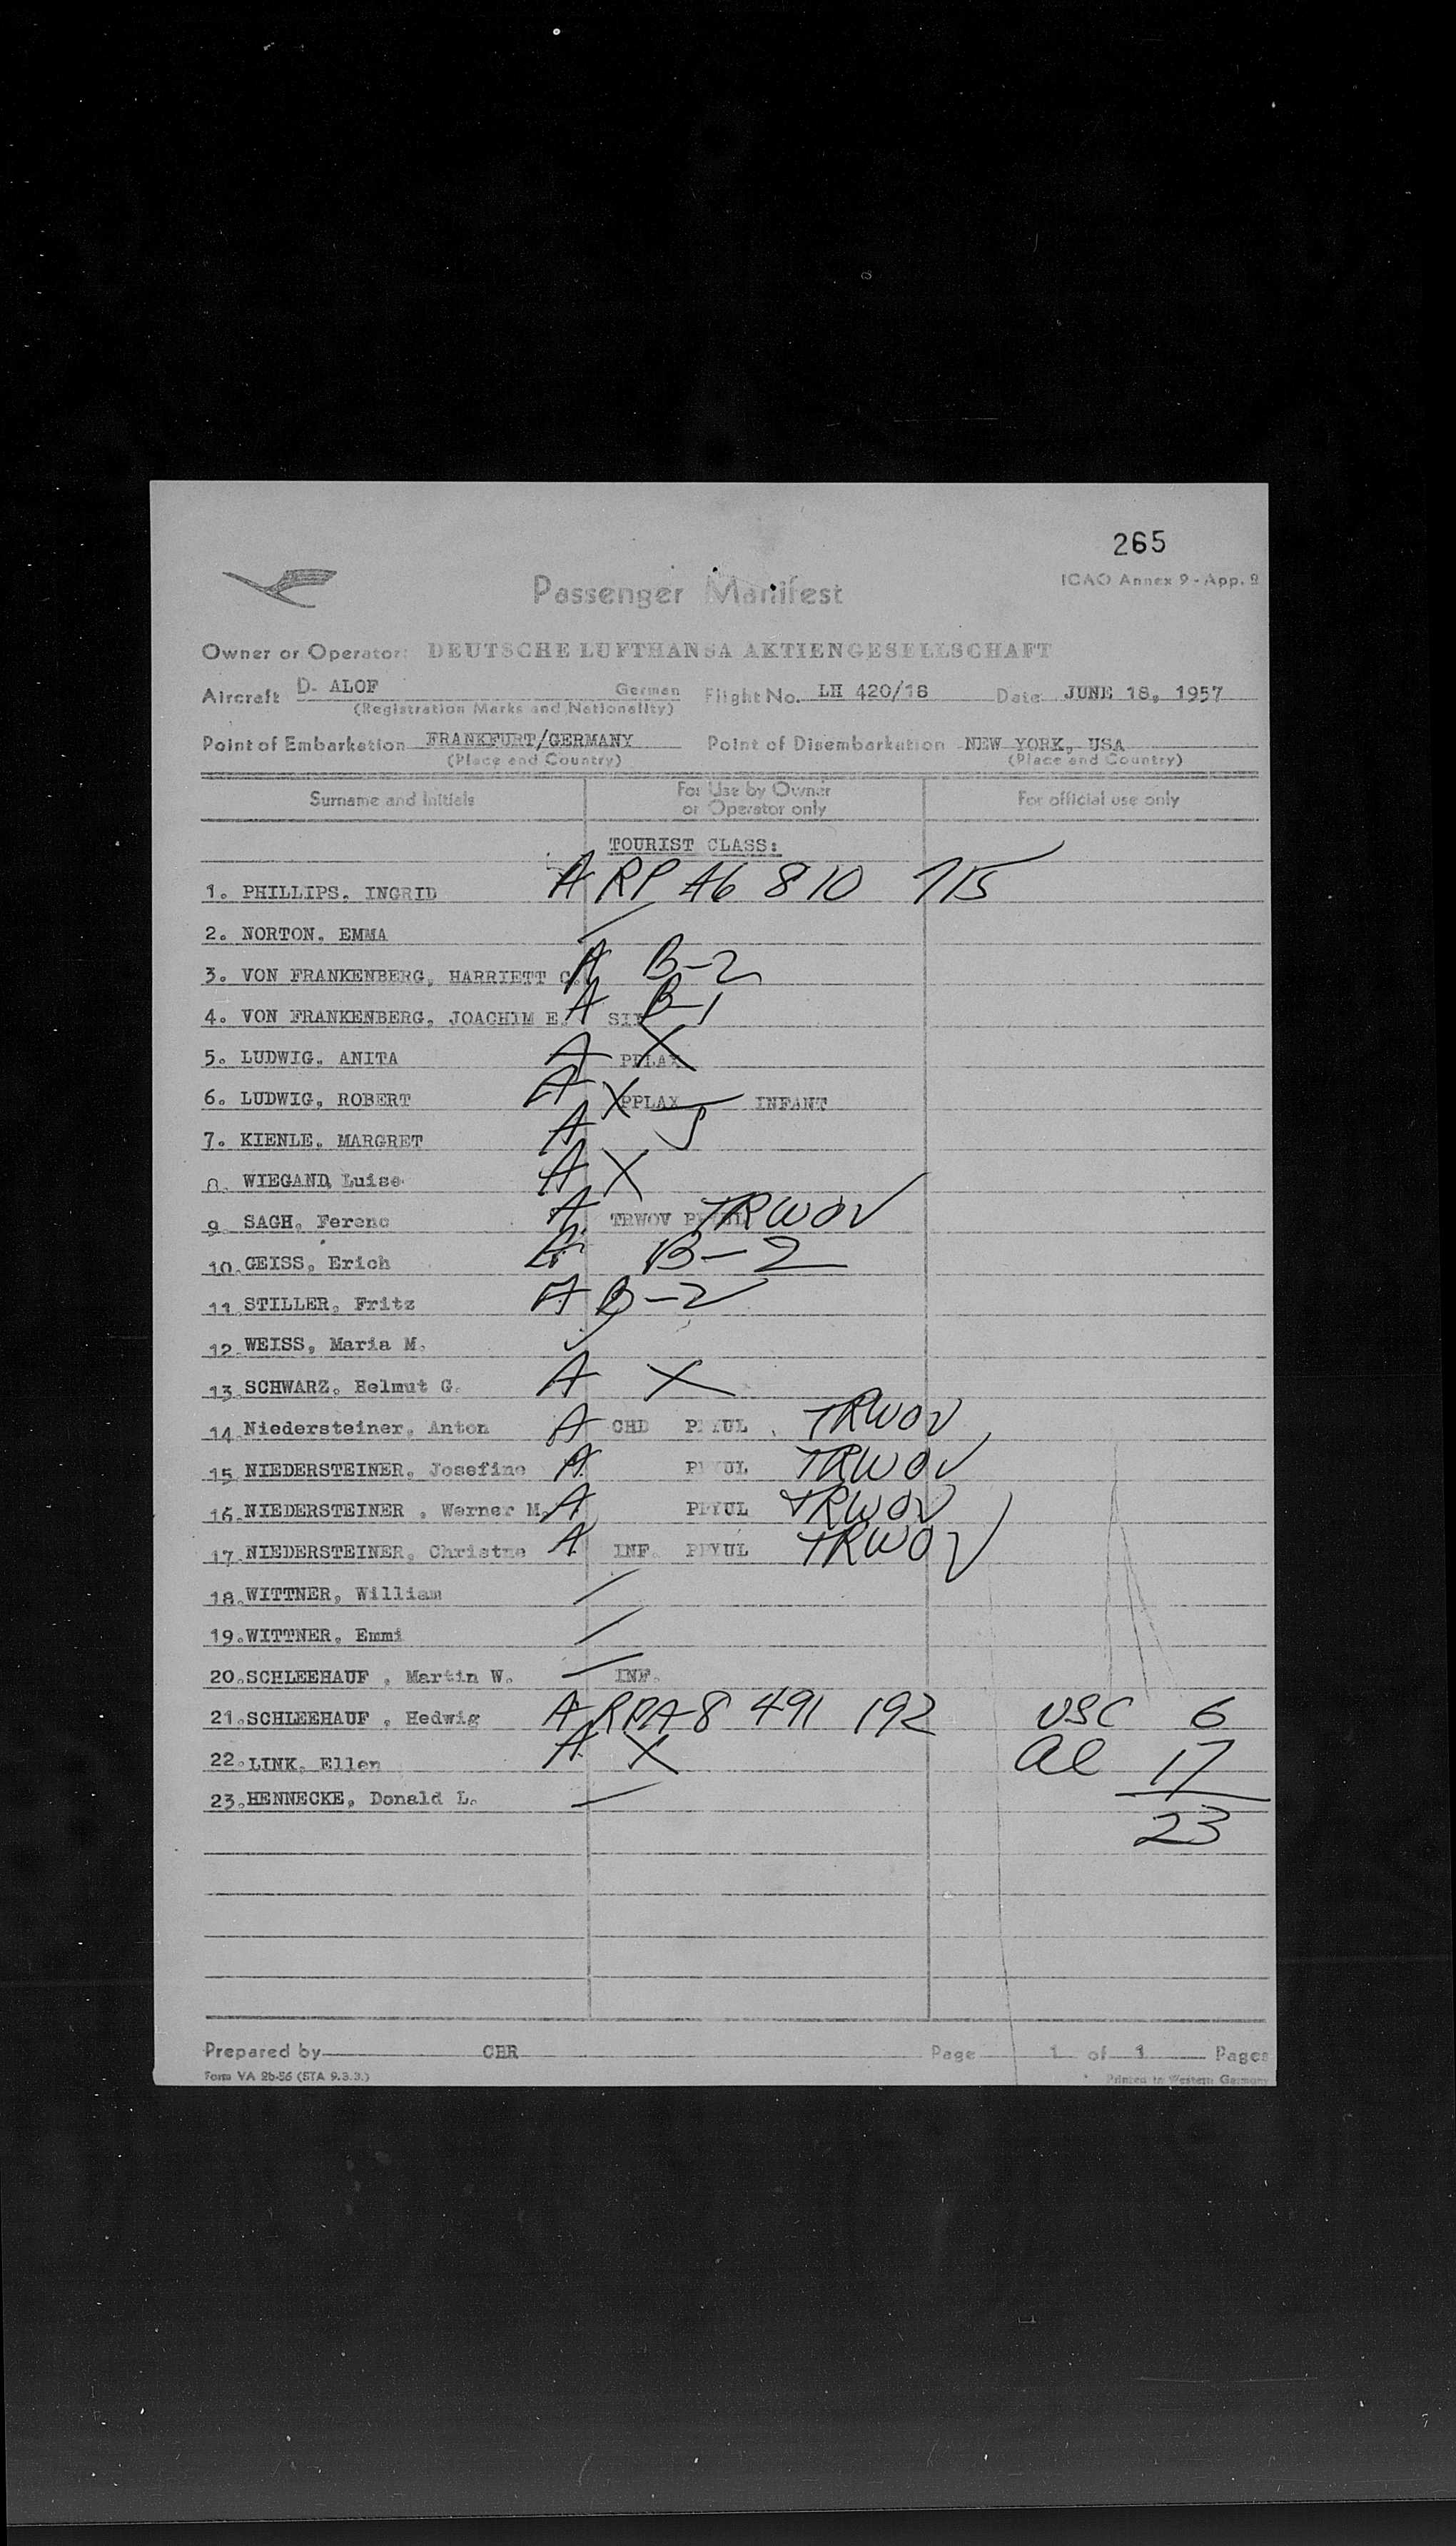 265
ICAO Annex 9 - App. 2
Passenger Manifest
Owner or Operator: DEUTSCHE LUFTHANSA AKTIENGESELLSCHAFT
Aircraft D- ALOF German Flight No. LH 420/18 Date JUNE 18, 1957
(Registration Marks and Nationality)
Point of Embarkation FRANKFURT/GERMANY Point of Disembarkation NEW YORK, USA
(Place and Country) (Place and Country)
Surname and Initials For Use by Owner or Operator only For official use only
TOURIST CLASS:
1. PHILLIPS, INGRID A RP A6 810 715
2. NORTON, EMMA
3. VON FRANKENBERG, HARRIETT C. A B-2
4. VON FRANKENBERG, JOACHIM E. A B-1
5. LUDWIG, ANITA A PPLAX X
6. LUDWIG, ROBERT A X PPLAX INFANT
7. KIENLE, MARGRET A
8. WIEGAND, Luise A X
9. SAGH, Ferenc A TRWOV TRWOV
10. GEISS, Erich A B-2
11. STILLER, Fritz A B-2
12. WEISS, Maria M.
13. SCHWARZ, Helmut G. A X
14. Niedersteiner, Anton A CHD TRWOV
15. NIEDERSTEINER, Josefine A TRWOV
16. NIEDERSTEINER , Werner M. A TRWOV
17. NIEDERSTEINER, Christne A INF. TRWOV
18. WITTNER, William
19. WITTNER, Emmi
20. SCHLEEHAUF , Martin W. INF.
21. SCHLEEHAUF , Hedwig A RPA8 491 192 USC 6
22. LINK, Ellen A X al 17
23. HENNECKE, Donald L.
23
Prepared by CBR Page 1 of 1 Pages
Form VA 2b-56 (STA 9.3.3.) Printed in Western Germany